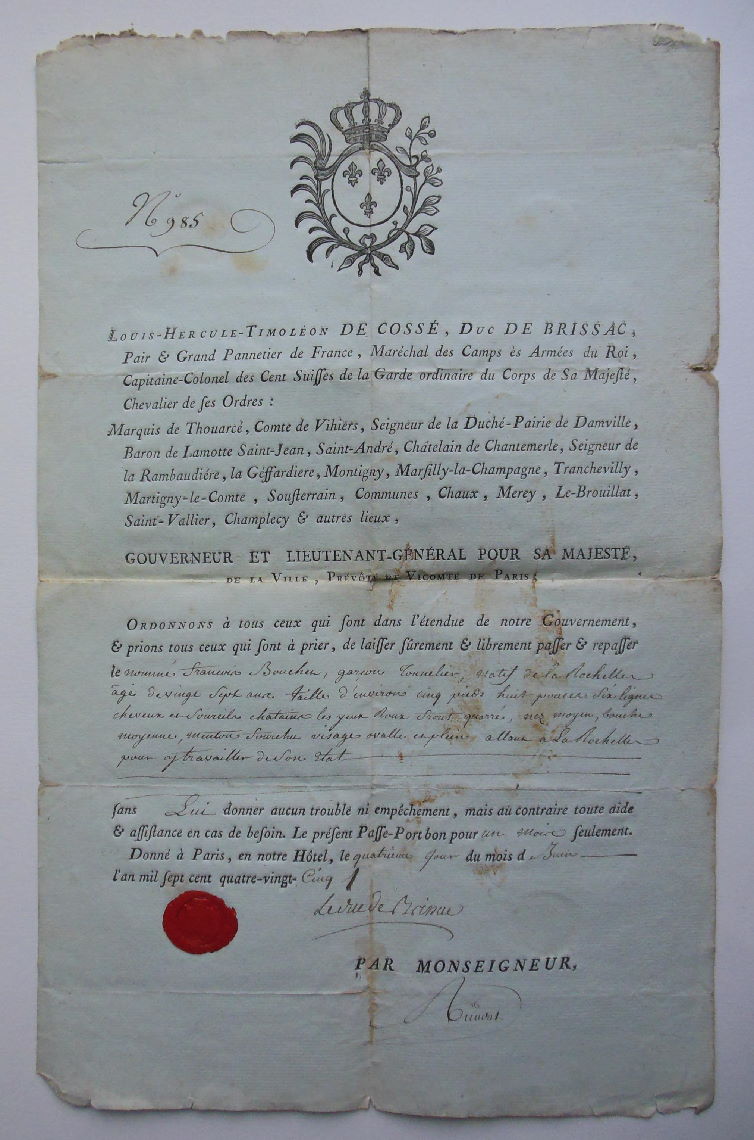 N.° 985
LOUIS-HERCULE-TIMOLÉON DE COSSÉ, DUC DE BRISSAC,
Pair & Grand Pannetier de France, Maréchal des Camps ès Armées du Roi,
Capitaine-Colonel des Cent Suiſſes de la Garde ordinaire du Corps de Sa Majeſté,
Chevalier de ſes Ordres :
Marquis de Thouarcé, Comte de Vihiers, Seigneur de la Duché-Pairie de Damville,
Baron de Lamotte Saint-Jean, Saint-André, Châtelain de Chantemerle, Seigneur de
la Rambaudiére, la Géffardiere, Montigny, Marſilly-la-Champagne, Tranchevilly,
Martigny-le-Comte, Souſterrain, Communes, Chaux, Merey, Le-Brouillat,
Saint-Vallier, Champlecy & autres lieux,
GOUVERNEUR ET LIEUTENANT-GÉNÉRAL POUR SA MAJESTÉ,
DE LA VILLE, PRÉVÔTÉ ET VICOMTÉ DE PARIS;
ORDONNONS à tous ceux qui ſont dans l'étendue de notre Gouvernement,
& prions tous ceux qui ſont à prier, de laiſſer ſûrement & librement paſſer & repaſſer
le nommé francois Boucher, garcon Tonnelier, natif de la Rochelle
agé de vingt sept ans, taille d'environ cinq pieds huit pouces six lignes
cheveux et Sourcils chatains les yeux Roux front quarré, nez moyen, bouche
moyenne, menton fourchu visage ovalle et plein allant à La Rochelle
pour y travailler de son état
ſans Lui donner aucun trouble ni empêchement, mais au contraire toute aide
& aſſiſtance en cas de beſoin. Le préſent Paſſe-Port bon pour un mois ſeulement.
Donné à Paris, en notre Hôtel, le quatrieme jour du mois de Juin
l'an mil ſept cent quatre-vingt-Cinq
Le duc de Brissac
PAR MONSEIGNEUR,